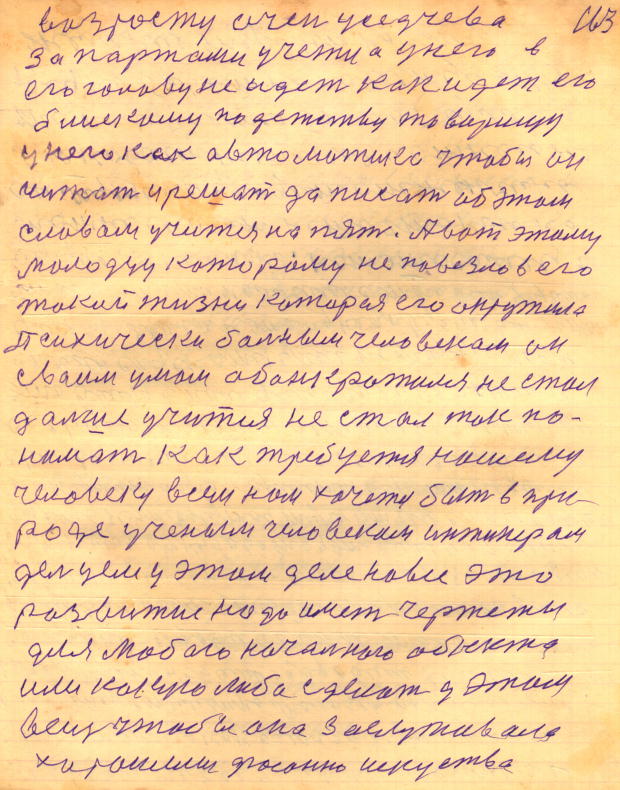 возросту очен уседчева 163
за партами учетца унего в
его голову не идет как идет его
близкому подетству товарищу
у него как автоматика чтобы он
читат и решат да писат об этом
словам учится на пят. А вот этому
молодцу которому не повезло в его
такой жизни которая его окружила
Психически балным человекам он
сваим умом
далше учится не стал так по-
нимат как требуется нашему
человеку всем нам хочетца быт в при-
роде ученым человекам инжинерам
делцем у этом деле новые это
развитие надо имет чертежы
для любого началного объекта
или кокую либо сделат у этом
вещ чтобы она заслуживала
хорошими искуства